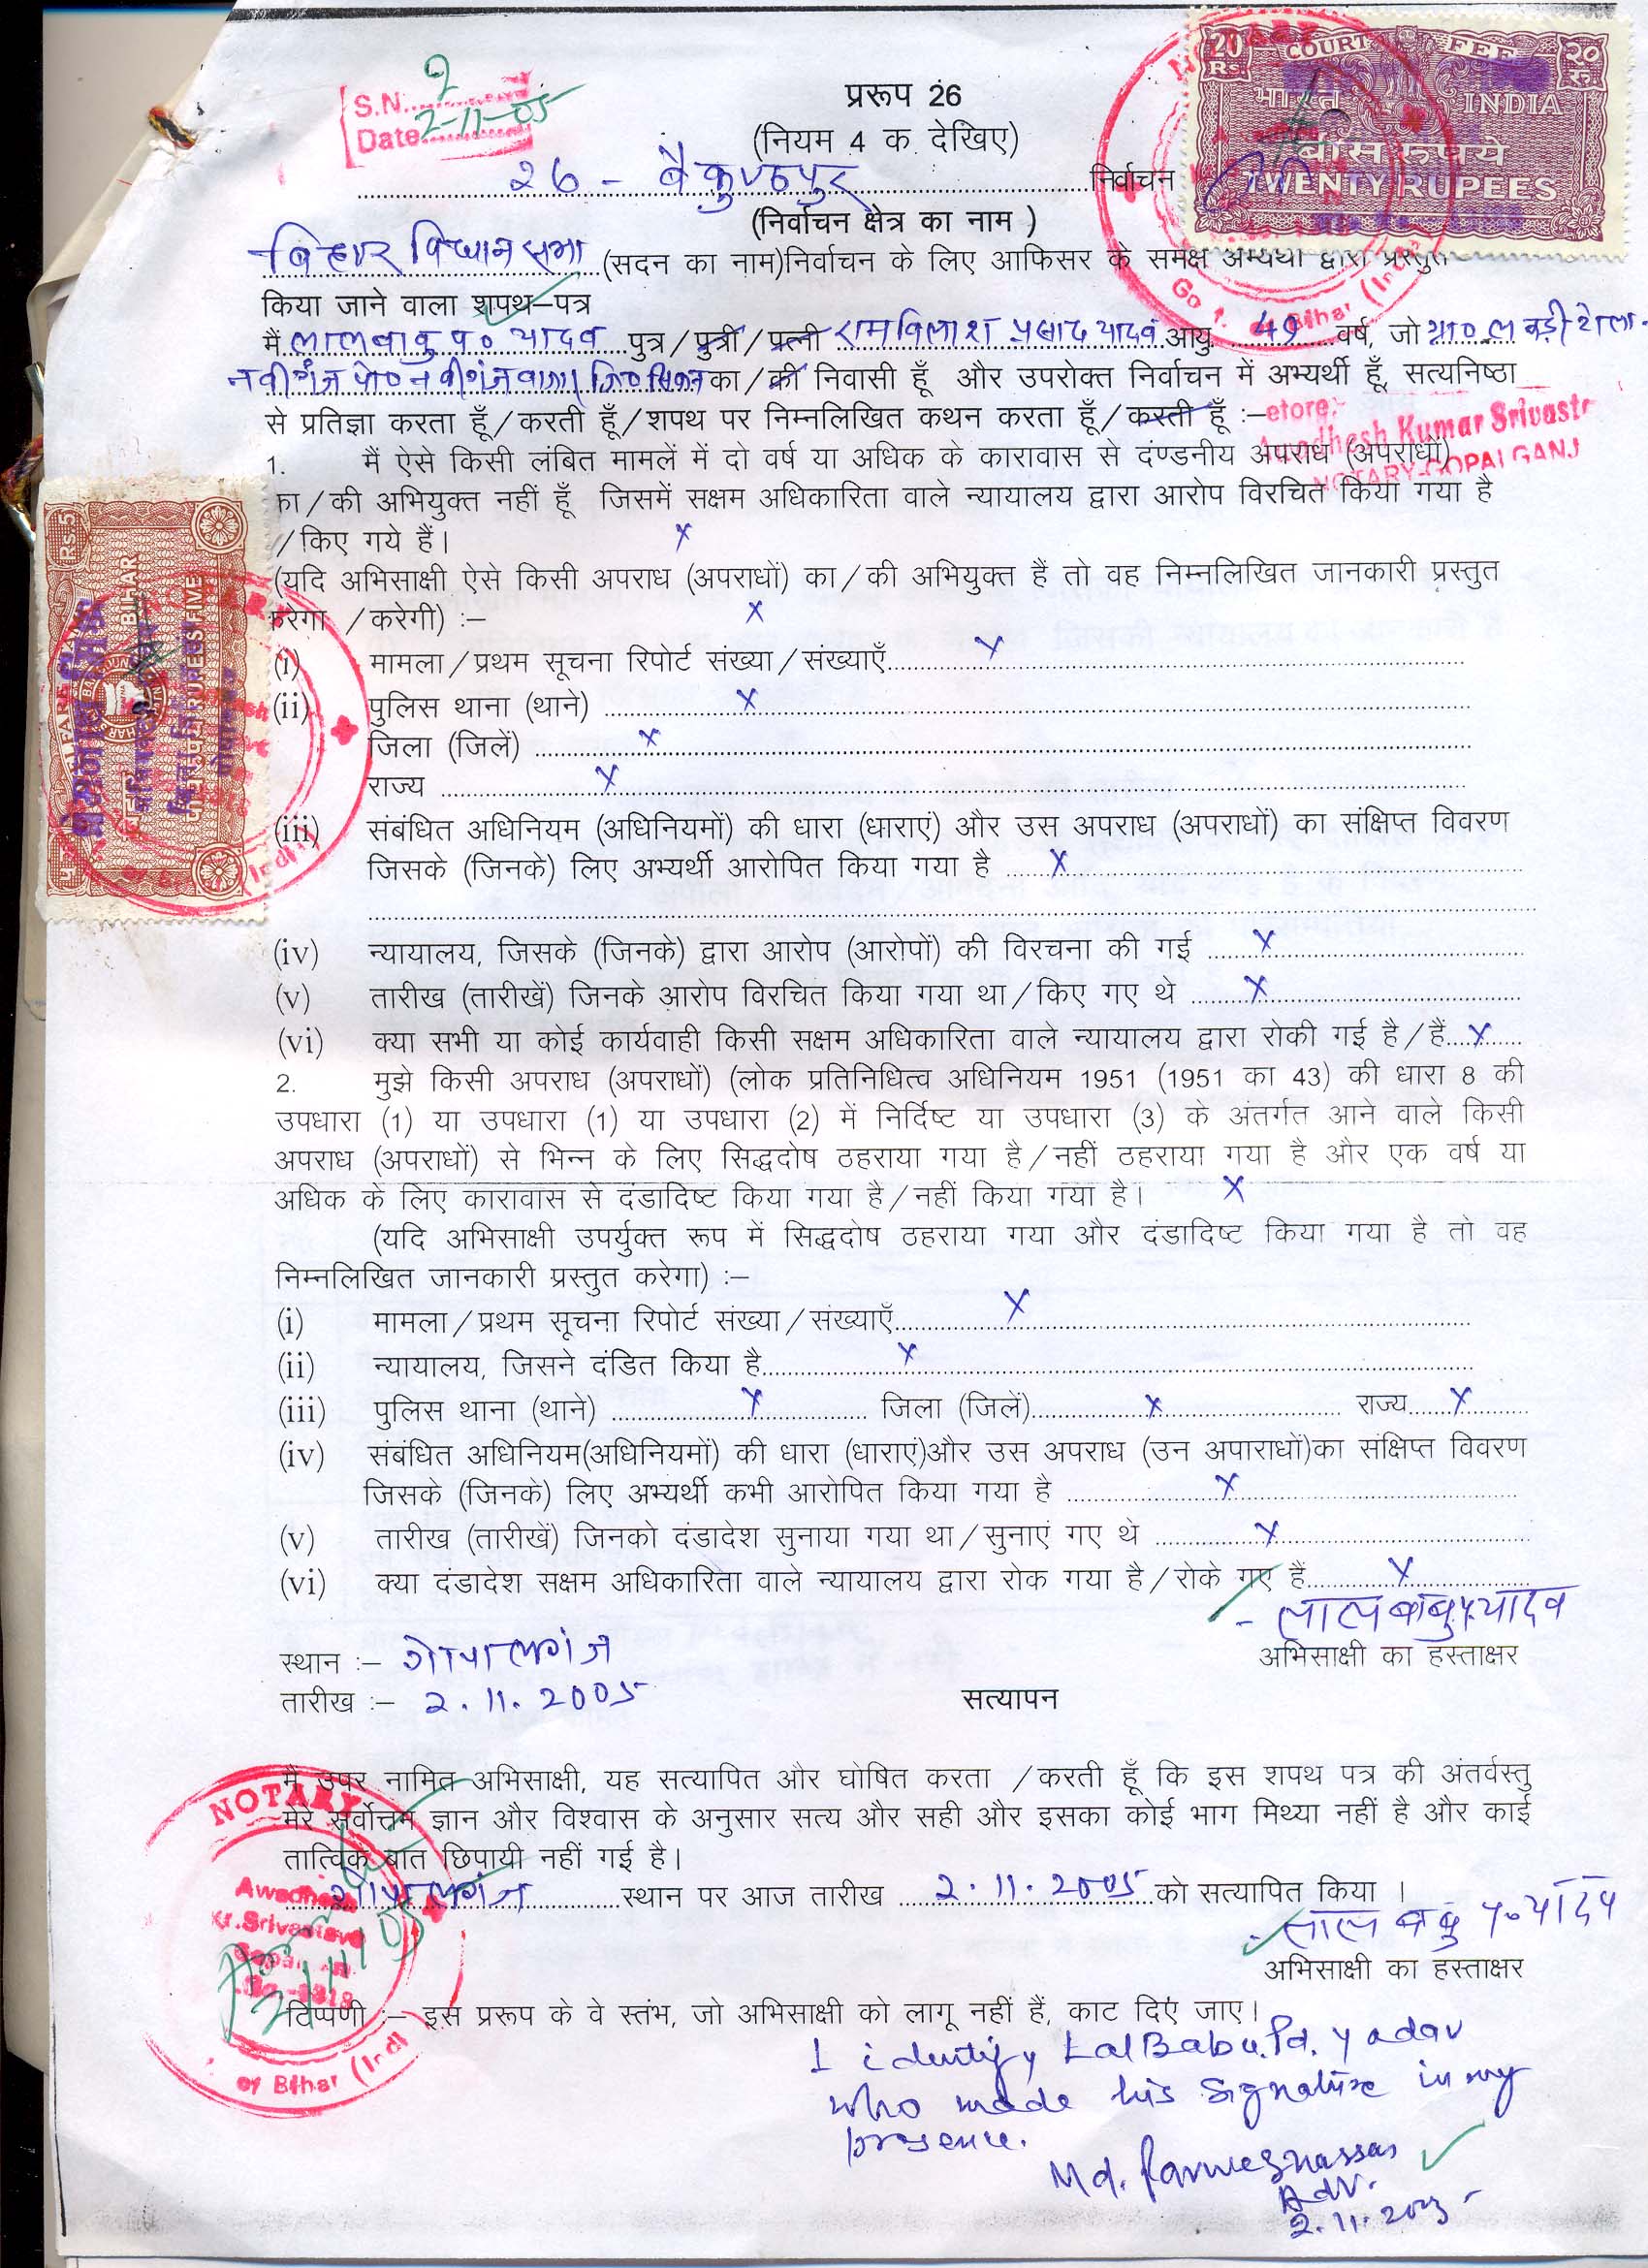 S.N. 2
Date 2-11-05
20 Rs. COURT FEE २० रु.
भारत INDIA
बीस रुपये
TWENTY RUPEES
प्ररूप 26
(नियम 4 क देखिए)
26 - बैकुण्ठपुर निर्वाचन
(निर्वाचन क्षेत्र का नाम )
बिहार विधान सभा (सदन का नाम)निर्वाचन के लिए आफिसर के समक्ष अभ्यर्थी द्वारा प्रस्तुत
किया जाने वाला शपथ–पत्र
मैं लालबाबु प्र० यादव पुत्र/पुत्री/पत्नी रामविलाश प्रसाद यादव आयु 49 वर्ष, जो ग्रा०
का/की निवासी हूँ और उपरोक्त निर्वाचन में अभ्यर्थी हूँ, सत्यनिष्ठा
से प्रतिज्ञा करता हूँ/करती हूँ/शपथ पर निम्नलिखित कथन करता हूँ/करती हूँ :–
Kumar Srivast
NOTARY-GOPALGANJ
1. मैं ऐसे किसी लंबित मामलें में दो वर्ष या अधिक के कारावास से दंण्डनीय अपराध (अपराधों)
का/की अभियुक्त नहीं हूँ जिसमें सक्षम अधिकारिता वाले न्यायालय द्वारा आरोप विरचित किया गया है
/किए गये हैं। x
(यदि अभिसाक्षी ऐसे किसी अपराध (अपराधों) का/की अभियुक्त हैं तो वह निम्नलिखित जानकारी प्रस्तुत
करेगा /करेगी) :– x
(i) मामला/प्रथम सूचना रिपोर्ट संख्या/संख्याएँ x
(ii) पुलिस थाना (थाने) x
जिला (जिलें) x
राज्य x
(iii) संबंधित अधिनियम (अधिनियमों) की धारा (धाराएं) और उस अपराध (अपराधों) का संक्षिप्त विवरण
जिसके (जिनके) लिए अभ्यर्थी आरोपित किया गया है x
(iv) न्यायालय, जिसके (जिनके) द्वारा आरोप (आरोपों) की विरचना की गई x
(v) तारीख (तारीखें) जिनके आरोप विरचित किया गया था/किए गए थे x
(vi) क्या सभी या कोई कार्यवाही किसी सक्षम अधिकारिता वाले न्यायालय द्वारा रोकी गई है/हैं x
2. मुझे किसी अपराध (अपराधों) (लोक प्रतिनिधित्व अधिनियम 1951 (1951 का 43) की धारा 8 की
उपधारा (1) या उपधारा (1) या उपधारा (2) में निर्दिष्ट या उपधारा (3) के अंतर्गत आने वाले किसी
अपराध (अपराधों) से भिन्न के लिए सिद्धदोष ठहराया गया है/नहीं ठहराया गया है और एक वर्ष या
अधिक के लिए कारावास से दंडादिष्ट किया गया है/नहीं किया गया है। x
(यदि अभिसाक्षी उपर्युक्त रूप में सिद्धदोष ठहराया गया और दंडादिष्ट किया गया है तो वह
निम्नलिखित जानकारी प्रस्तुत करेगा) :–
(i) मामला/प्रथम सूचना रिपोर्ट संख्या/संख्याएँ x
(ii) न्यायालय, जिसने दंडित किया है x
(iii) पुलिस थाना (थाने) x जिला (जिलें) x राज्य x
(iv) संबंधित अधिनियम(अधिनियमों) की धारा (धाराएं)और उस अपराध (उन अपाराधों)का संक्षिप्त विवरण
जिसके (जिनके) लिए अभ्यर्थी कभी आरोपित किया गया है x
(v) तारीख (तारीखें) जिनको दंडादेश सुनाया गया था/सुनाएं गए थे x
(vi) क्या दंडादेश सक्षम अधिकारिता वाले न्यायालय द्वारा रोक गया है/रोके गए हैं x
लालबाबु प्र यादव
अभिसाक्षी का हस्ताक्षर
स्थान :– गोपालगंज
तारीख :– 2.11.2005
सत्यापन
मैं उपर नामित अभिसाक्षी, यह सत्यापित और घोषित करता /करती हूँ कि इस शपथ पत्र की अंतर्वस्तु
मेरे सर्वोत्तम ज्ञान और विश्वास के अनुसार सत्य और सही और इसका कोई भाग मिथ्या नहीं है और काई
तात्विक बात छिपायी नहीं गई है।
गोपालगंज स्थान पर आज तारीख 2.11.2005 को सत्यापित किया ।
लाल बाबु प्र० यादव
अभिसाक्षी का हस्ताक्षर
NOTARY
of Bihar (Indi
टिप्पणी :– इस प्ररूप के वे स्तंभ, जो अभिसाक्षी को लागू नहीं हैं, काट दिएं जाए।
I identify Lal Babu. Pd. Yadav
who made his signature in my
presence.
Md.
Adv.
2.11.2005